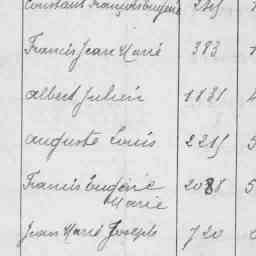 Constant François Eugène 245
Francis Jean Marie 383
Albert Julien 1181
Auguste Louis 2215
Francis Eugène 2088
Marie
Jean Marie Joseph 720